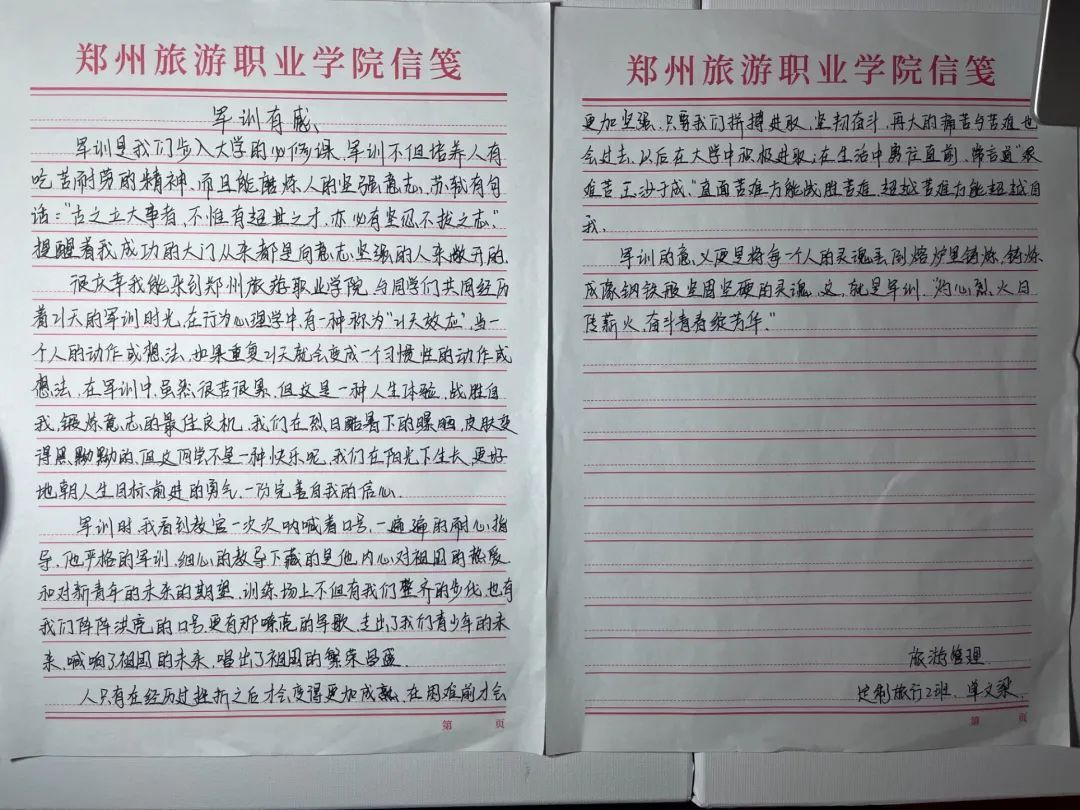 郑州旅游职业学院信笺
军训有感
军训是我们步入大学的必修课,军训不但培养人有
吃苦耐劳的精神,而且能磨炼人的坚强意志,苏轼有句
话:"古之立大事者,不惟有超世之才,亦必有坚忍不拔之志."
提醒着我成功的大门从来都是向意志坚强的人来敞开的.
很庆幸我能来到郑州旅游职业学院,与同学们共同经历
着21天的军训时光,在行为心理学中,有一种称为"21天效应",当一
个人的动作或想法,如果重复21天就会变成一个习惯性的动作或
想法,在军训中,虽然很苦很累,但这是一种人生体验,战胜自
我,锻炼意志的最佳良机,我们在烈日酷暑下的曝晒,皮肤变
得黑黝黝的,但这何尝不是一种快乐呢,我们在阳光下生长,更好
地朝人生目标前进的勇气,一份完善自我的信心.
军训时,我看到教官一次次呐喊着口号,一遍遍的耐心指
导,他严格的军训,细心的教导下藏的是他内心对祖国的热爱
和对新青年的未来的期望,训练场上不但有我们整齐的步伐,也有
我们阵阵洪亮的口号,更有那嘹亮的军歌,走出了我们青少年的未
来,喊响了祖国的未来,唱出了祖国的繁荣昌盛.
人只有在经历过挫折之后才会变得更加成熟,在困难前才会
第 页
郑州旅游职业学院信笺
更加坚强,只要我们拼搏进取,坚韧奋斗,再大的痛苦与苦难也
会过去,以后在大学中积极进取;在生活中勇往直前,常言道"艰
难苦王沙于成,"直面苦难方能战胜苦难,超越苦难方能超越自
我.
军训的意义便是将每一个人的灵魂丢倒熔炉里铸炼,铸炼
成像钢铁般坚固坚硬的灵魂,这,就是军训."灼心烈火日
传薪火,奋斗青春绽芳华."
旅游管理
定制旅行2班 单文梁
第 页